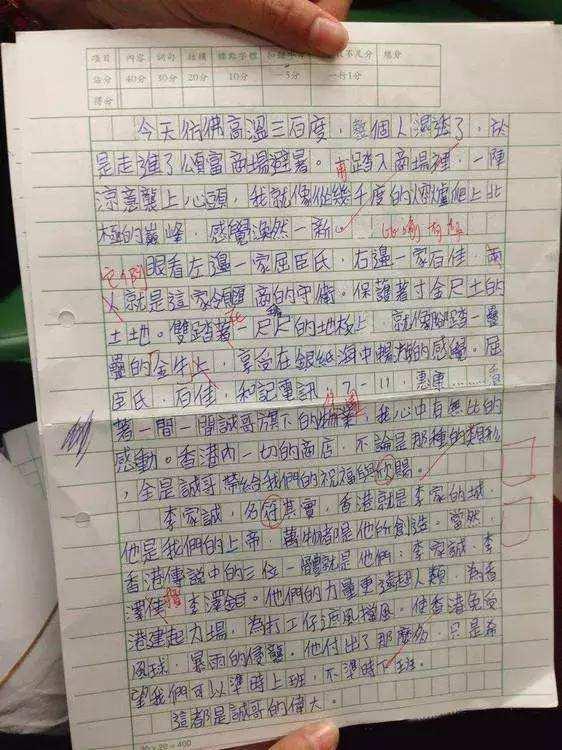 項目 內容 詞句 結構 標點字體 總分
佔分 40分 30分 20分 10分 5分 一行1分
得分
今天彷彿高溫三百度,整個人濕透了,於
是走進了頌富商場避暑。甫踏入商場裡,一陣
涼意襲上心頭,我就像從幾千度的熔爐爬上北
極的巔峰,感覺渙然一新。
比喻有序
它們
眼看左邊一家屈臣氏,右邊一家百佳,兩
人就是這家領匯商的守衛。保護著寸金尺土的
土地。雙踏著一尺尺的地板上,就像腳踏疊
疊的金牛上,享受在銀紙海中的感覺。屈
臣氏,百佳,和記電訊,7-11,惠康………看
著一間一間誠哥旗下的,我心中有無比的
感動。香港內一切的商店,不論是那種的類形
,全是誠哥帶給我們的祝福與欣賜。
李家誠,名符其實,香港就是李家的城,
他是我們的上帝,萬物都是他所創造。當然,
香港傳說中的三位一體就是他們:李家誠、李
澤佳、李澤鉅。他們的力量更遠超人類,為香
港建起力場,為打工仔遮風擋風。使香港免受
風球,暴雨的侵襲。他付出了那麼多,只是希
望我們可以準時上班,不準時下班。
這都是誠哥的偉大。
20 × 20 = 400